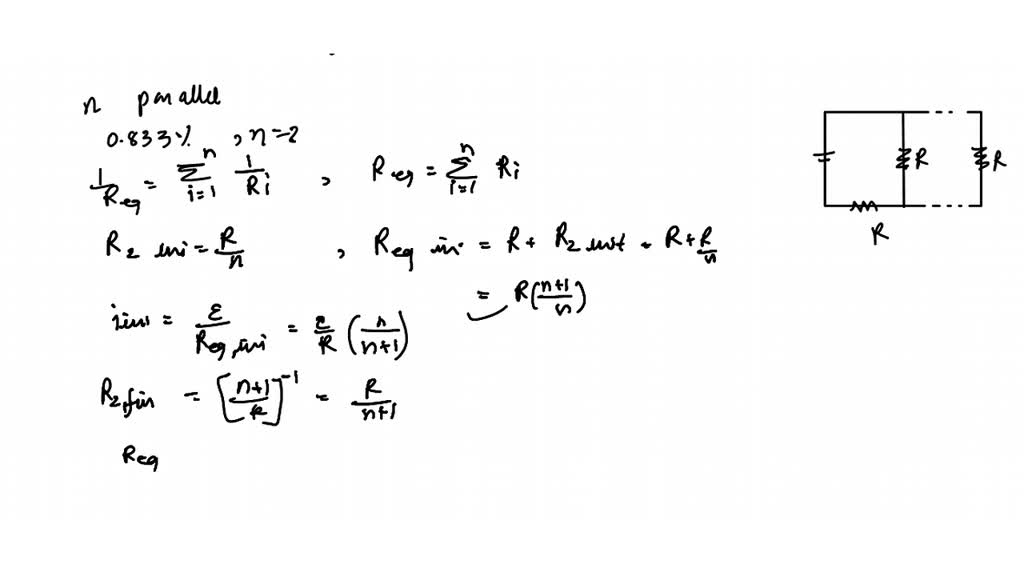 n parallel
0.833% , n=2
1/Req = Σ_{i=1}^{n} 1/Ri , Req = Σ_{i=1}^{n} Ri
R2 ini = R/n , Req in = R + R2 init = R + R/n
= R((n+1)/n)
iini = ε/Req,ini = ε/R (n/(n+1))
R2,fin = [(n+1)/R]^-1 = R/(n+1)
Req
R
R
R